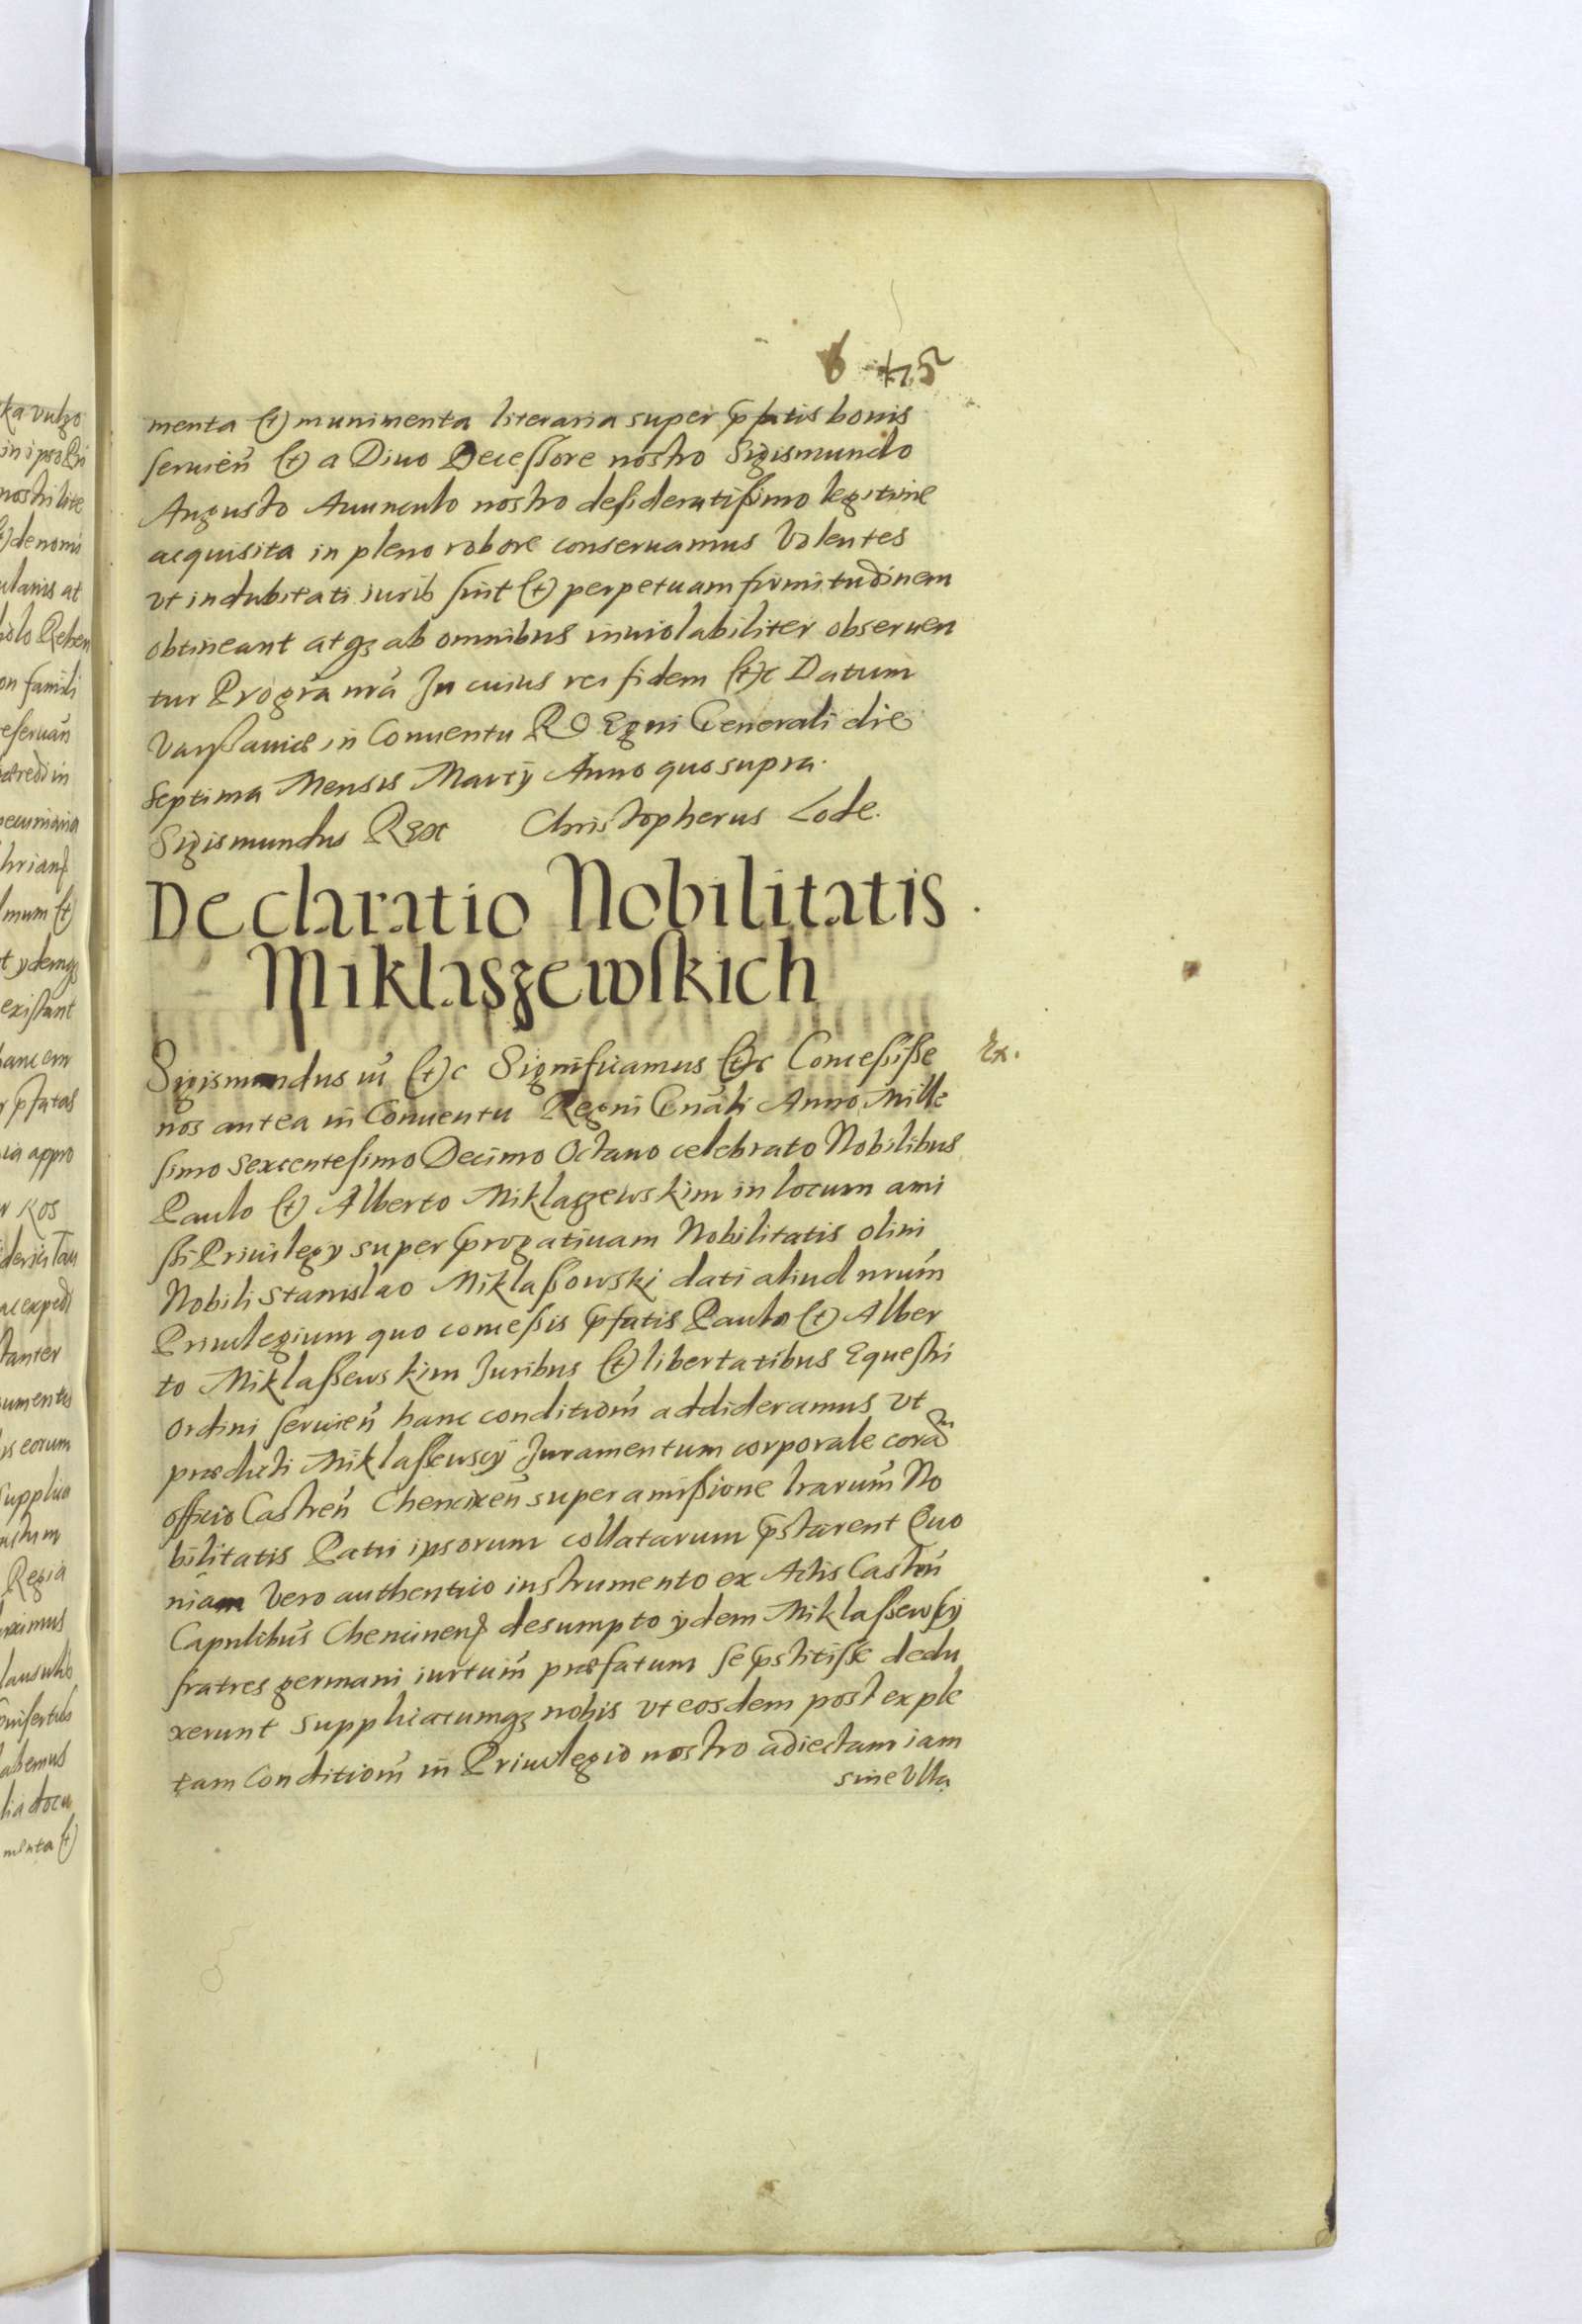 6 45
menta (et) munimenta literaria super p̃fatis bonis
seruień (et) a Diuo Decessore nostro Sigismundo
Augusto Auunculo nostro desideratissimo legitime
acquisita in pleno robore conseruamus Volentes
vt indubitati iurib sint (et) perpetuam firmitudinem
obtineant atq; ab omnibus inuiolabiliter obseruen
tur Progra nrã In cuius rei fidem (et)c Datum
Varssauiæ in Conuentu REgni Generali die
Septima Mensis Martÿ Anno quo supra.
Sigismundus Rex Christopherus Lode.
Declaratio Nobilitatis.
Miklaszewskich
Sigismundus iii (et)c Significamus (et)c Concessisse
Ex.
nos antea in Conuentu Regni Gnãli Anno Mille
simo Sexcentesimo Decimo Octauo celebrato Nobilibus
Paulo (et) Alberto Miklaszewskim in locum ami
ssi Priuilegy super p̃rogatiuam Nobilitatis olim
Nobili Stanislao Miklassowski dati aliud nrũm
Priuilegium quo concessis p̃fatis Paulo (et) Alber
to Miklassewskim Juribus (et) libertatibus Equestri
ordini seruień hanc conditiom̃ addideramus vt
prædicti Miklassewscÿ Juramentum corporale corãm
officio Castreń Chencixeń super amissione lrarum̃ No
bilitatis Patri ipsorum collatarum p̃starent Quo
niam Vero authentico instrumento ex Actis Castrń
Capnlibus̃ Chencinens desumpto ydem Miklassewscÿ
fratres germani iurtum̃ præfatum se p̃stitisse dedu
xerunt Supplicatumq; nobis vt eosdem post exple
tam Conditiom̃ in Priuilegio nostro adiectam iam
sine Vlla
ka vulgo
nostri lite
denomi
ulanis at
on famili
eseruań
pecuniaria
mum (et)
t ydemq;
existant
p̃fatas
ia appro
Kos
ac expedi
tanter
umentis
is eorum
Supplica
Regia
ximus
lausulis
abemus
lia docu
menta (et)